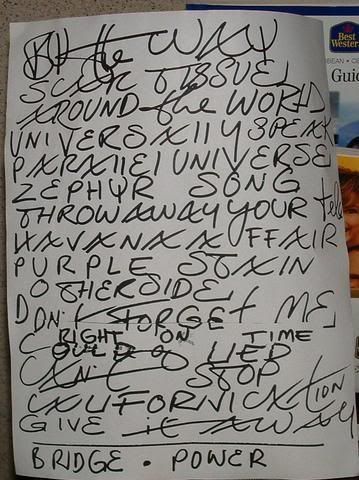 By the WAY
SCAR TISSUE
AROUND the WORLD
UNIVERSAllY SPEAK
PARAllEl UNIVERSE
ZEPHYR SONG
THROW AWAY YOUR tele
HAVANA AFFAIR
PURPLE STAIN
OTHERSIDE
DON'T FORGET ME
RIGHT ON TIME
COULD LIED
CAN'T STOP
CALIFORNICATION
GIVE it AWAY
BRIDGE • POWER
Best
Wester
Guid